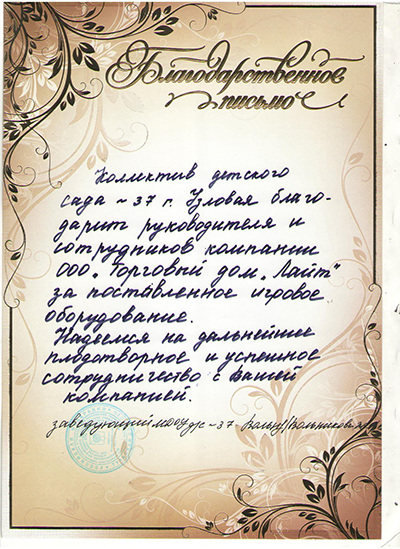 Благодарственное
письмо
Коллектив детского
сада ~ 37 г. Узловая благо-
дарит руководителя и
сотрудников компании
ООО „Торговый дом „Лайт"
за поставленное игровое
оборудование.
Надеемся на дальнейшее
плодотворное и успешное
сотрудничество с Вашей
компанией.
заведующий мдоу д/с ~ 37